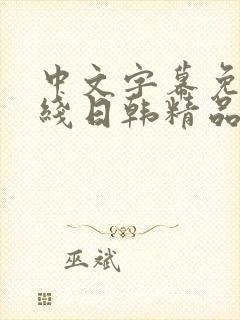 中文字幕免
线日韩精品
巫斌